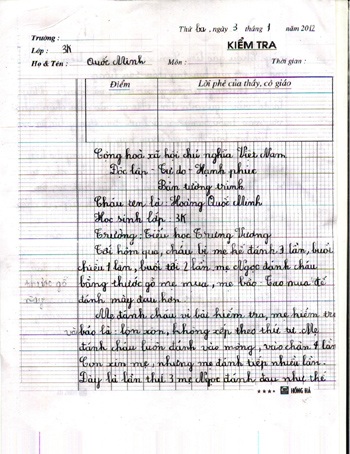 Thứ ba, ngày 3 tháng 1 năm 2012
Trường :
Lớp : 3K
KIỂM TRA
Họ & Tên : Quốc Minh Môn : Thời gian :
Điểm Lời phê của thầy, cô giáo
Cộng hoà xã hội chủ nghĩa Việt Nam
Độc lập - Tự do - Hạnh phúc
Bản tường trình
Cháu tên là : Hoàng Quốc Minh
Học sinh lớp - 3K
Trường - Tiểu học Trưng Vương
Tối hôm qua, cháu bị mẹ kế đánh 3 lần, buổi
chiều 1 lần, buổi tối 2 lần mẹ Ngọc đánh cháu
bằng thước gỗ mẹ mua, mẹ bảo : Tao mua để
thước gỗ
này
đánh mày đau hơn.
Mẹ đánh cháu vì bài kiểm tra, mẹ kiểm tra
và bảo là : lộn xộn, không xếp theo thứ tự. Mẹ
đánh cháu luôn đánh vào mông, vào chân 1 lần
Con xin mẹ, nhưng mẹ đánh tiếp nhiều lần
Đây là lần thứ 3 mẹ Ngọc đánh đau như thế
HỒNG HÀ